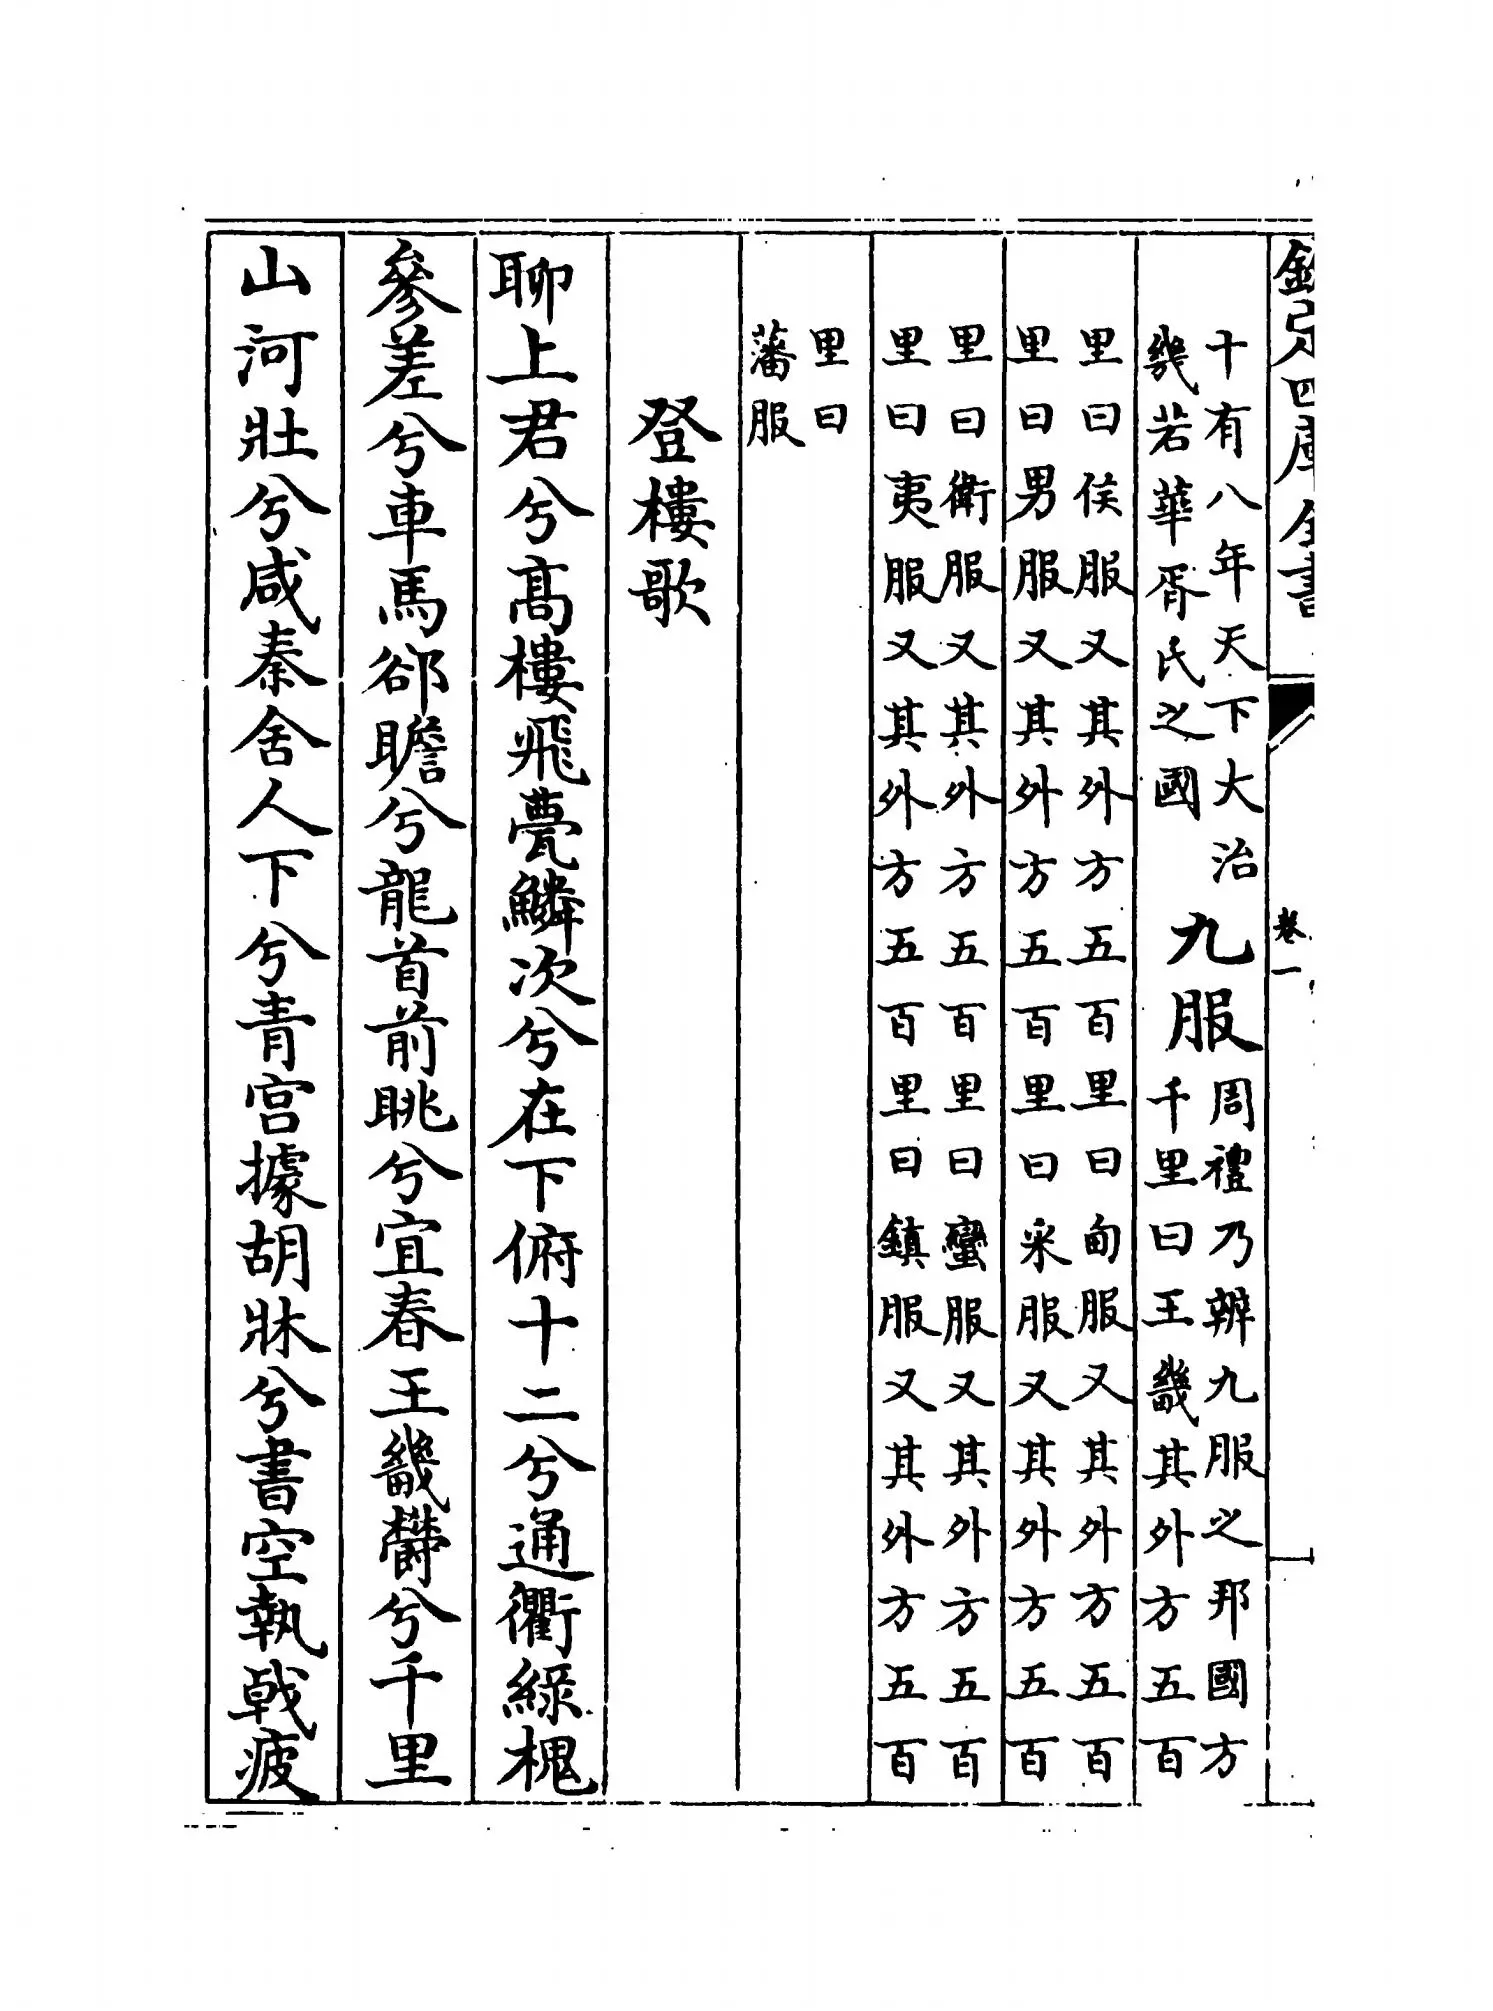 欽定四庫全書
卷一
十有八年天下大治
幾若華胥氏之國
九服
周禮乃辨九服之邦國方
千里曰王畿其外方五百
里曰侯服又其外方五百里曰甸服又其外方五百
里曰男服又其外方五百里曰采服又其外方五百
里曰衛服又其外方五百里曰蠻服又其外方五百
里曰夷服又其外方五百里曰鎮服又其外方五百
里曰
藩服
登樓歌
聊上君兮高樓飛甍鱗次兮在下俯十二兮通衢綠槐
參差兮車馬郤瞻兮龍首前眺兮宜春王畿鬱兮千里
山河壯兮咸秦舍人下兮青宮據胡牀兮書空執戟疲